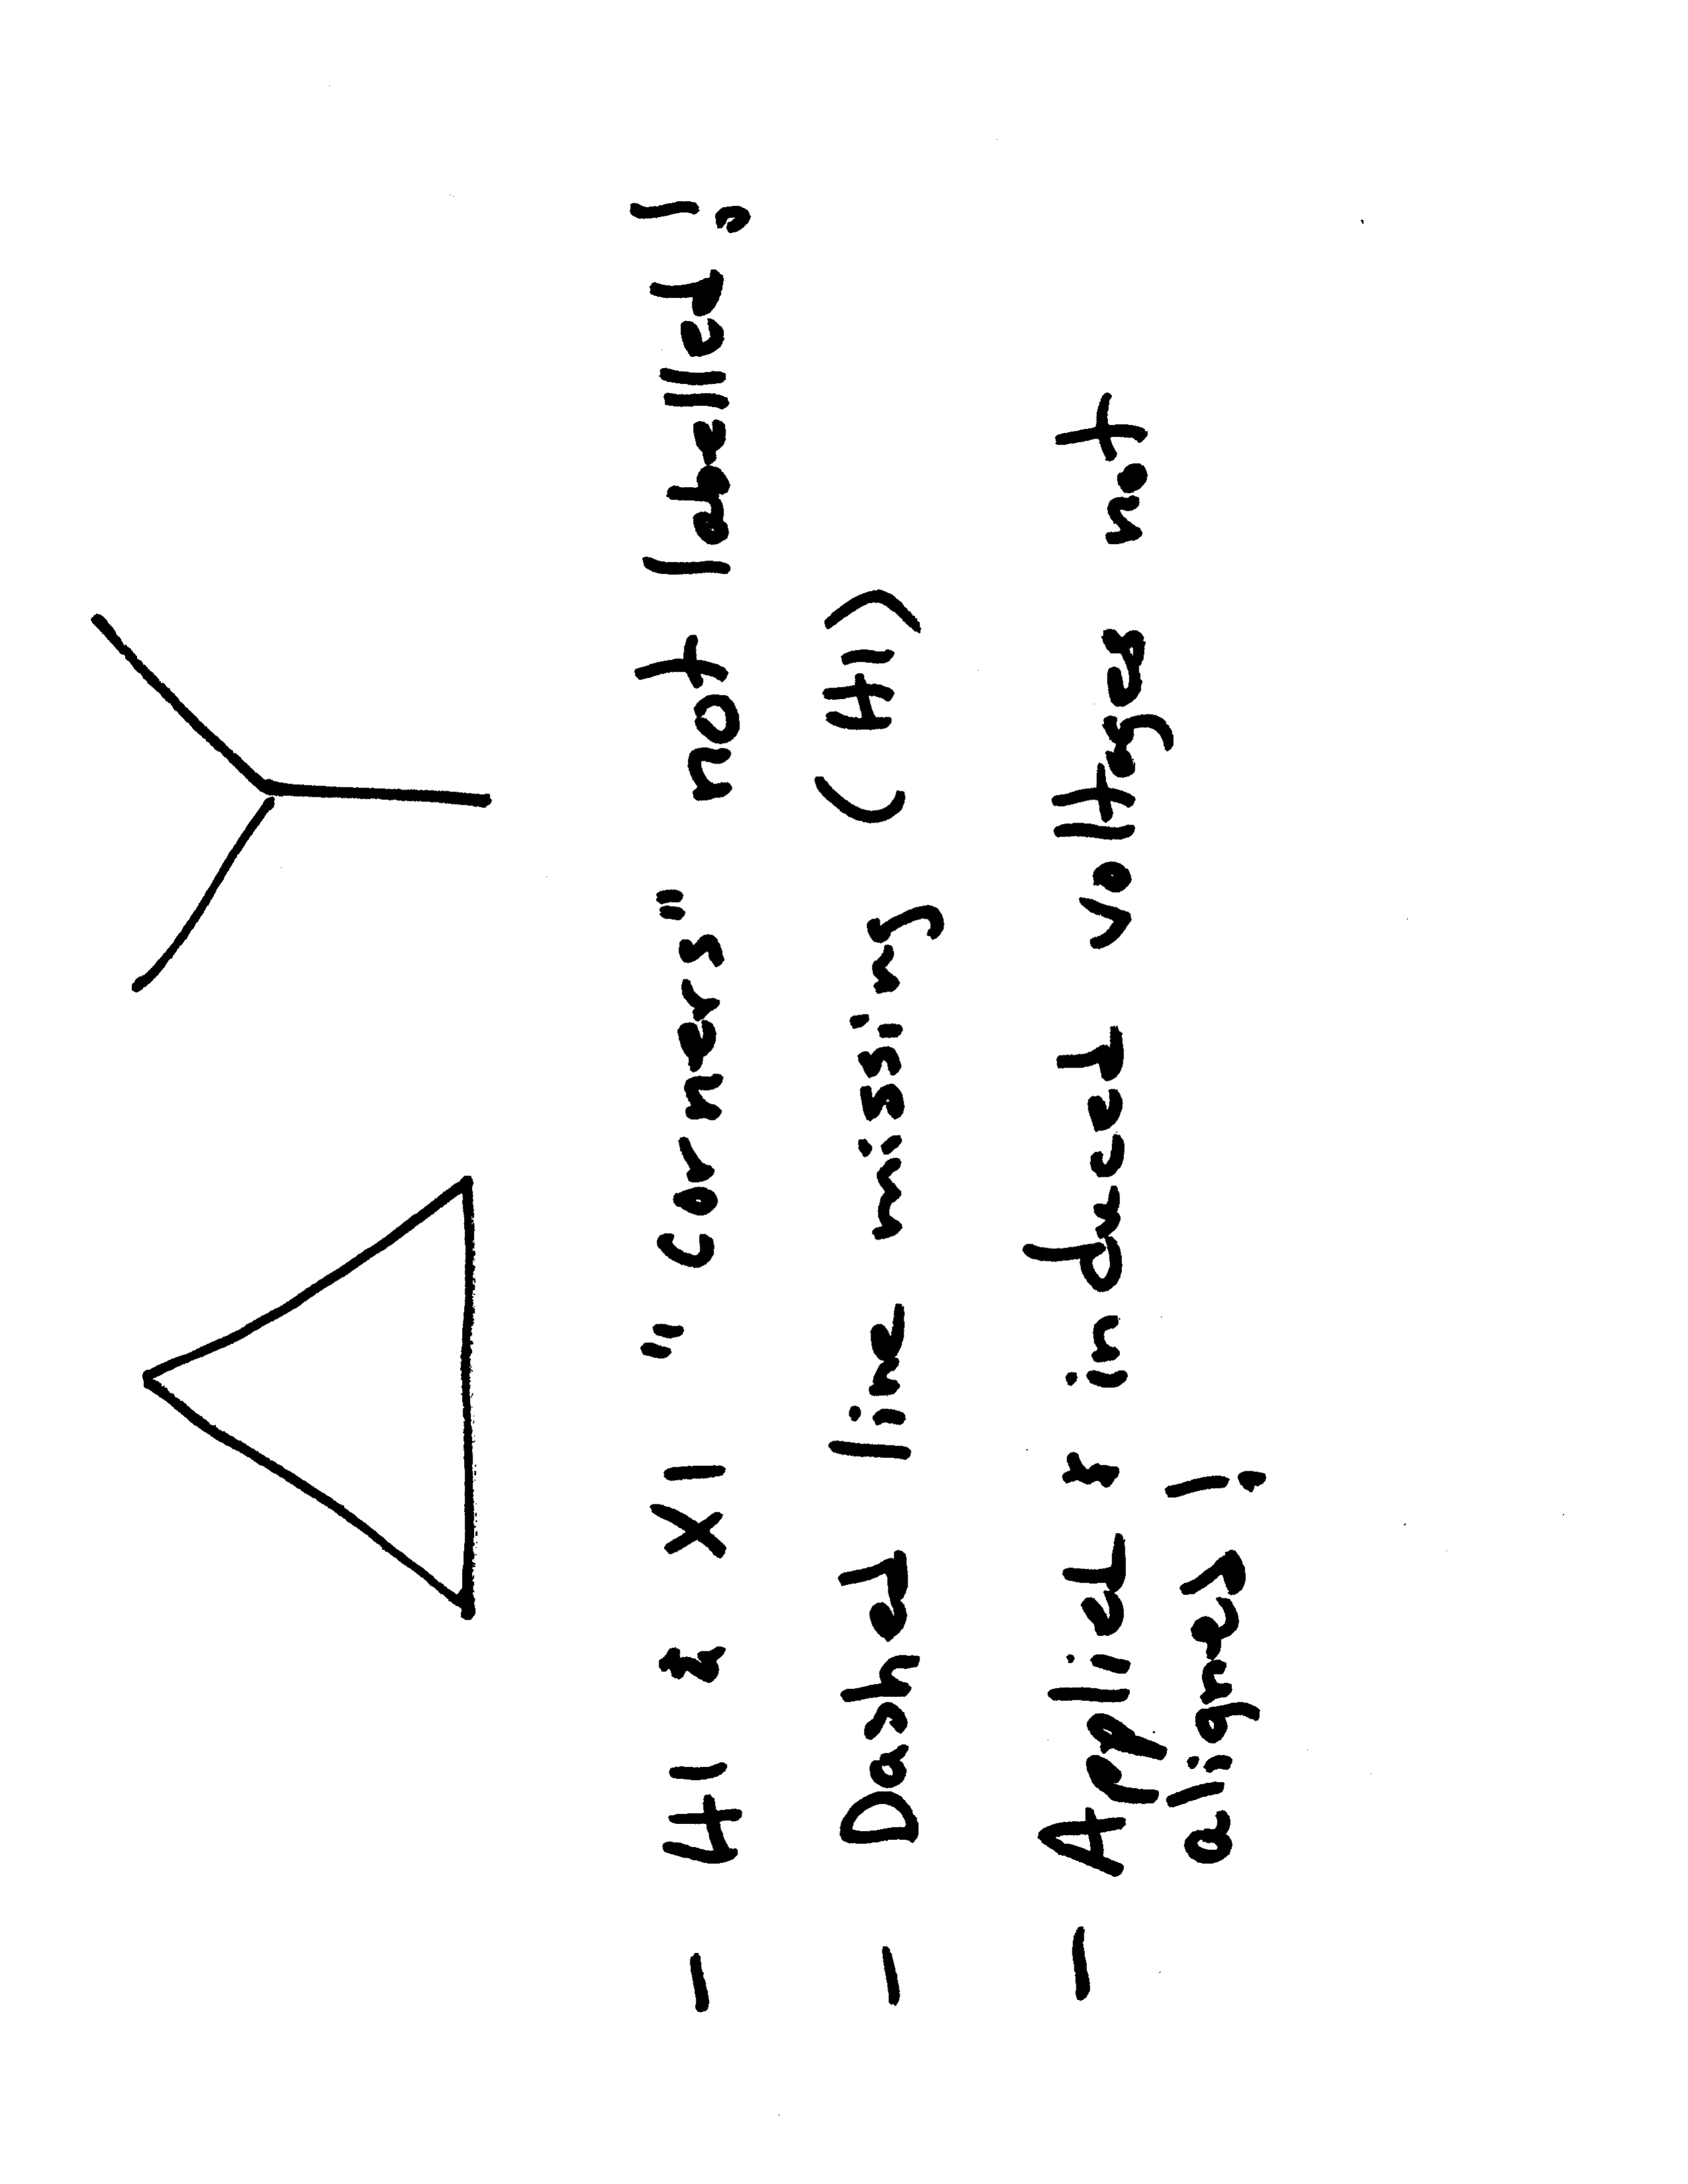 - H1 & X1 "corners" not labelled!
- Dashed line missing (H1)
- Applied & induced voltages not
aligned!